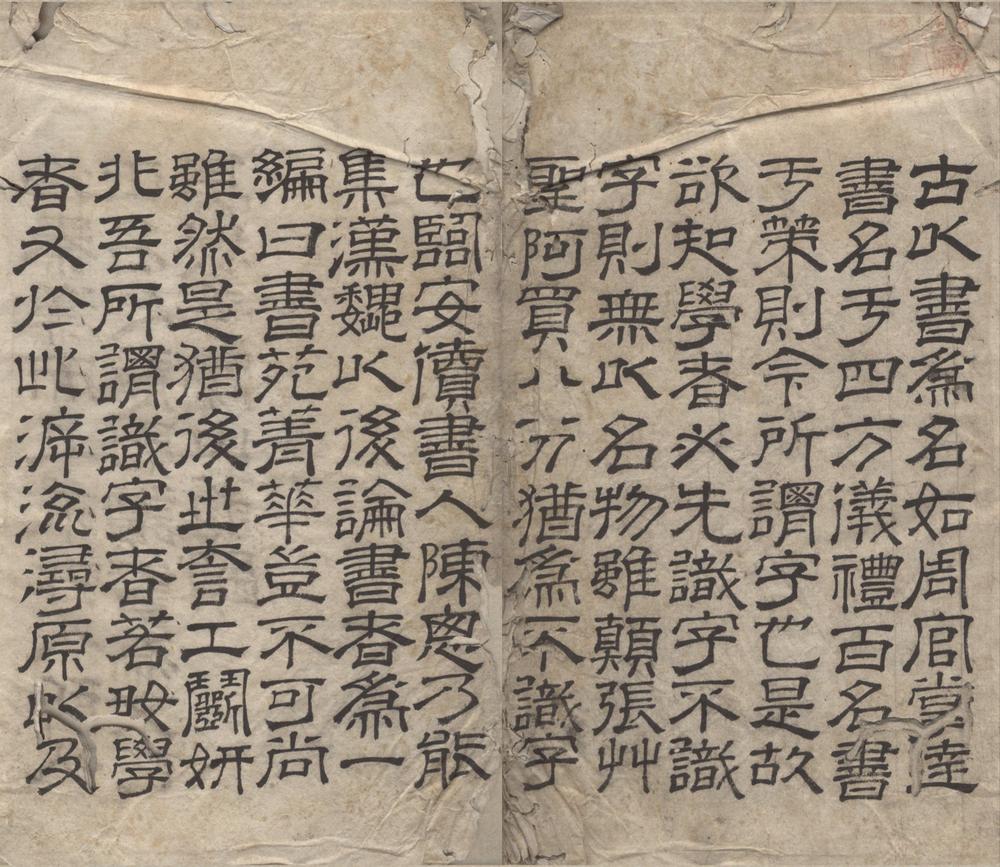 古以書爲名如周官掌達
書名于四方儀禮百名書
于策則今所謂字也是故
欲知學者必先識字不識
字則無以名物雖顛張艸
聖阿買八分猶爲不識字
也臨安儥書人陳思乃能
集漢魏以後論書者爲一
編曰書苑菁華豈不可尚
雖然是猶後世夸工鬭妍
非吾所謂識字者若好學
者又於此泝流尋原以及